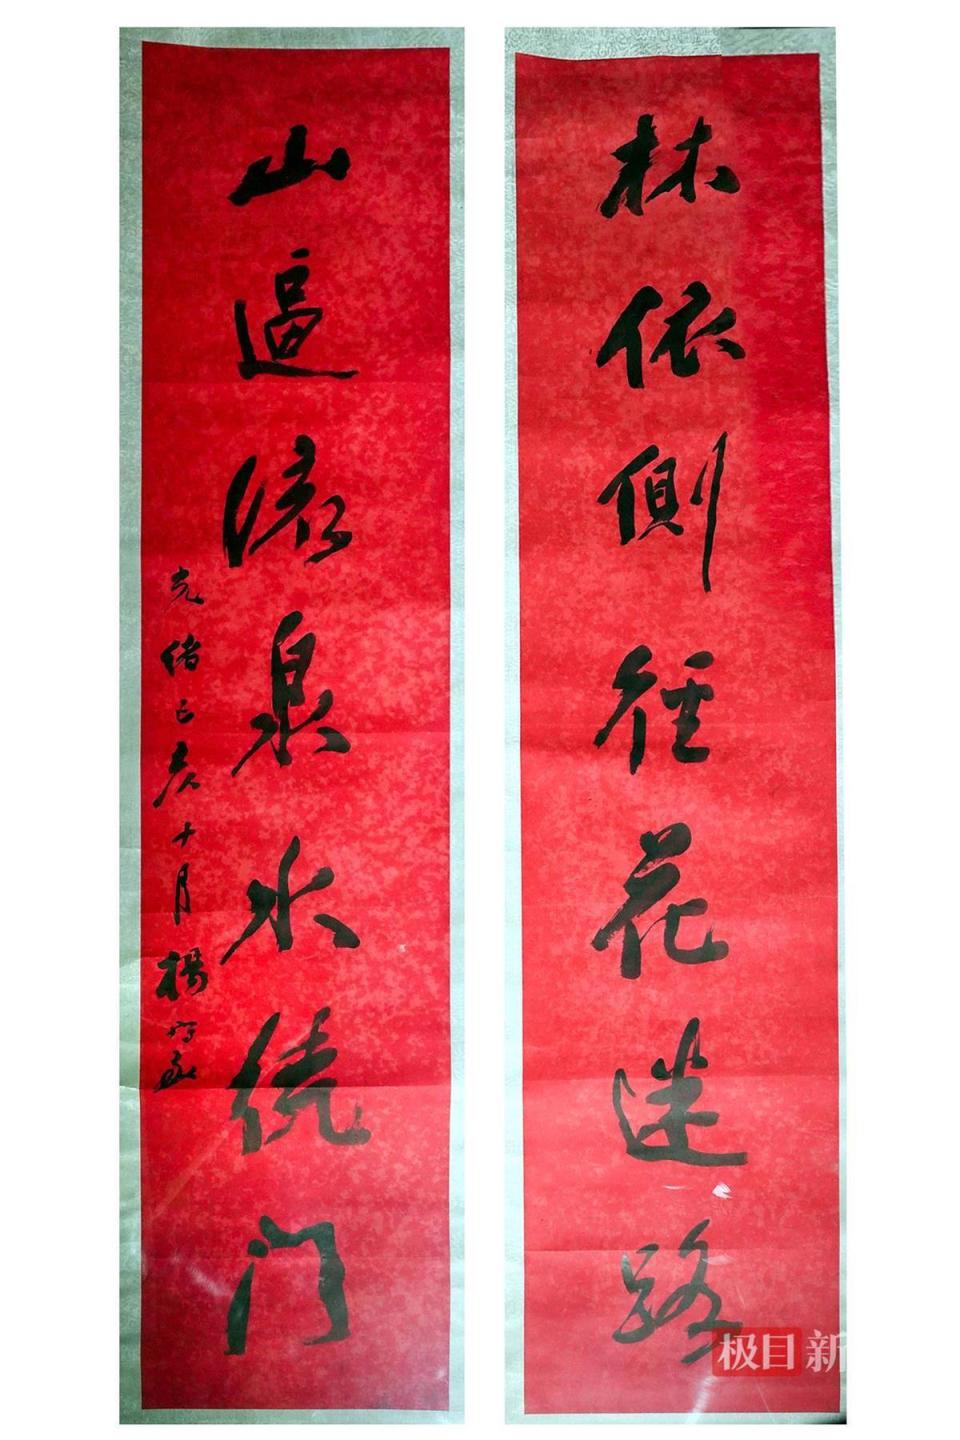 林依側徑花迷路
山逼流泉水绕门
光绪己亥十月楊守敬
极目新